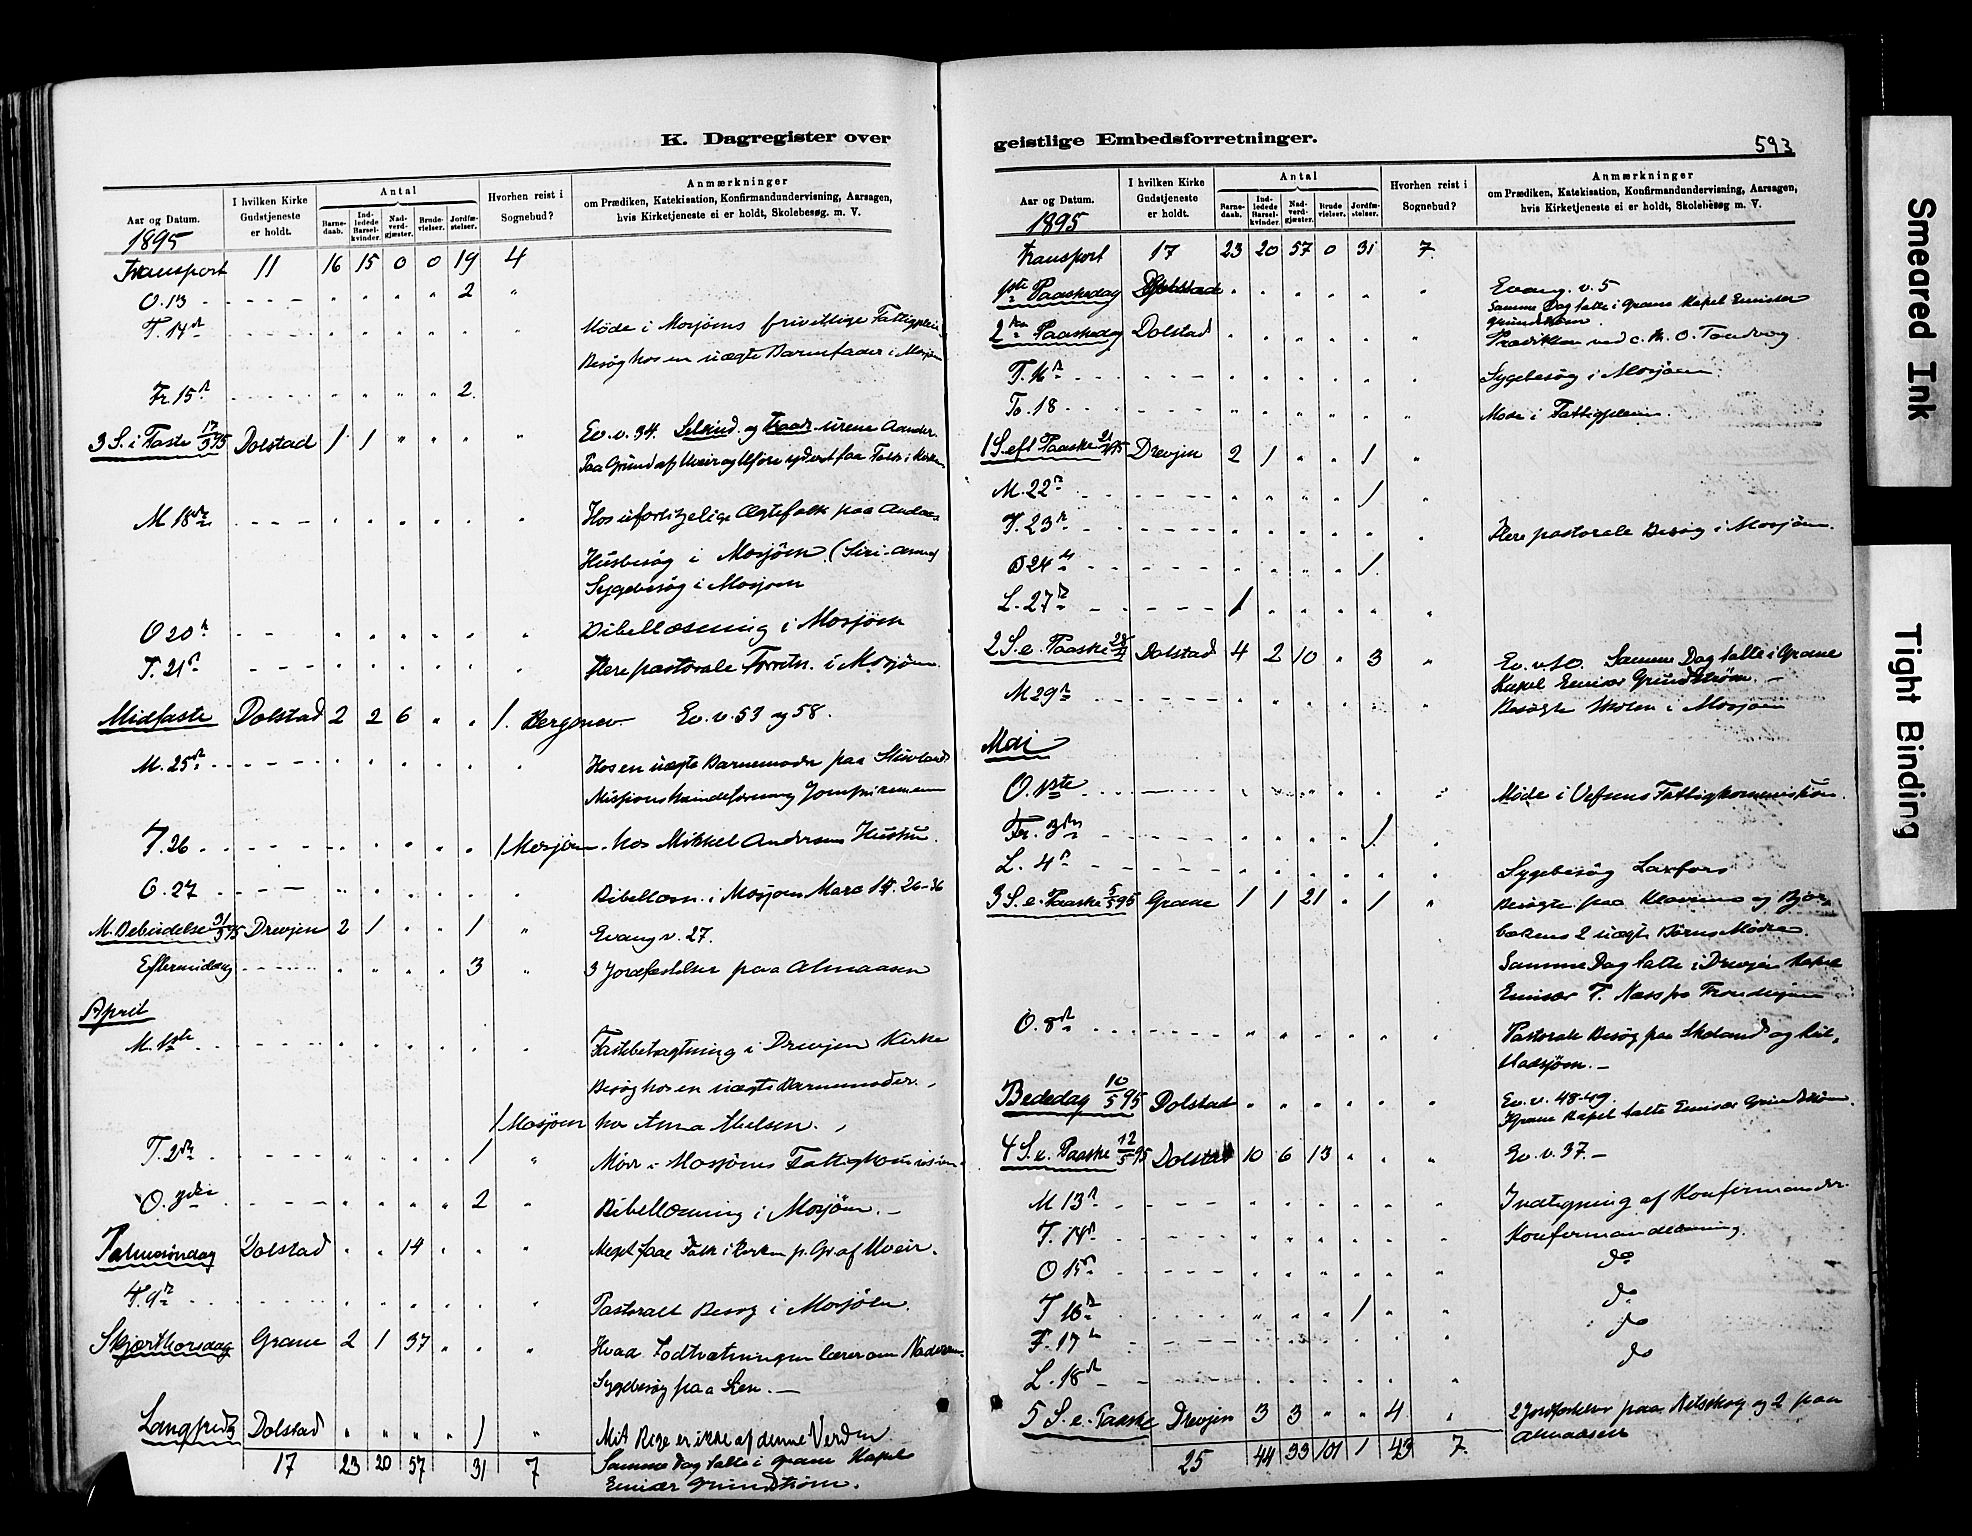 K. Dagregister over
Aar og Datum.
1895
I hvilken Kirke Gudstjeneste er holdt.
Antal
Barnedaab.
Indledede Barselkvinder.
Nadverdgjæster.
Brudevielser.
Jordfæstelser.
Hvorhen reist i Sognebud?
Anmærkninger
om Prædiken, Katekisation, Konfirmandundervisning, Aarsagen,
hvis Kirketjeneste ei er holdt, Skolebesøg. m. V.
Transport 11 16 15 0 0 19 4
O. 13 2
T. 14de Møde i Mosjøens frivillige Fattigpleie
Besøg hos en uægte Barnefader i Mosjøen
Fr 15de 2
3 S. i Faste 17/3 95 Dolstad 1 1 Ev. v. 34. og urene Aander
Paa Grund af Uveir og Uføre yderst faa Folk i Kirken
M 18de Hos uforligelige Ægtefolk paa
Husbesøg i Mosjøen
Sygebesøg i Mosjøen
O 20de Bibellæsning i Mosjøen
T. 21de Flere pastorale Forretn. i Mosjøen
Midfaste Dolstad 2 2 6 1. Ev. v. 53 og 58.
M. 25de Hos en uægte Barnemoder paa
Missionskvindeforening
T. 26 1 Mosjøen hos Mikkel Andersens Hustru.
O. 27 Bibellæsn. i Mosjøen Marc 14. 26-36
M. Bebudelse 31/3 95 Drevjen 2 1 1 Evang v. 27.
Eftermiddag 3 3 Jordfæstelser paa Almaasen
April
M. 1ste Fastebetragtning i Drevjen Kirke
Besøg hos en uægte Barnemoder.
1 Mosjøen hos Anna Nielsen.
T. 2den 1 Møde i Mosjøens Fattigkommission
O. 3die 2 Bibellæsning i Mosjøen.
Palmesøndag Dolstad 14 Meget faa Folk i Kirken p. Gr af Uveir.
T. 9de Pastoralt Besøg i Mosjøen.
Skjærthorsdag Grane 2 1 37 Hvad Fodtvætningen lærer om Nadveren
Sygebesøg paa
Langfredag Dolstad 1 Mit Rige er ikke af denne Verden
17 23 20 57 31 7 Samme Dag talte i Grane Kapel
Emisær Grundstrøm.
geistlige Embedsforretninger.
593
Aar og Datum.
1895
I hvilken Kirke Gudstjeneste er holdt.
Antal
Barnedaab.
Indledede Barselkvinder.
Nadverdgjæster.
Brudevielser.
Jordfæstelser.
Hvorhen reist i Sognebud?
Anmærkninger
om Prædiken, Katekisation, Konfirmandundervisning, Aarsagen,
hvis Kirketjeneste ei er holdt, Skolebesøg. m. V.
Transport 17 23 20 57 0 31 7.
1ste Paaskedag Dolstad Evang. v. 5
Samme Dag talte i Grane Kapel Emisær
Grundstrøm.
2den Paaskedag Dolstad Prædiken ved
T. 16de Sygebesøg i Mosjøen.
To. 18 Møde i Fattigpleien.
1 S. eft Paaske 21/4 95 Drevjen 2 1 1
M. 22de 1
T. 23de Flere pastorale Besøg i Mosjøen.
O 24de 1
L. 27de 1
2 S. e. Paaske 28/4 Dolstad 4 2 10 3 Ev. v. Samme Dag talte i Grane
Kapel Emisær Grundstrøm.
M 29de Besøgte Skolen i Mosjøen
Mai
O. 1ste Møde i Vefsens Fattigkommission.
Fr. 3die 1
L. 4de Sygebesøg Laxfors
3 S. e. Paaske 5/5 95 Grane 1 1 21 1 Besøgte paa og
2 uægte Børns Mødre.
Samme Dag talte i Drevjen Kapel
Emisær T. Næss fra Trondhjem
O. 8de Pastorale Besøg paa Skoland og
Bededag 10/5 95 Dolstad Ev. v. 48-49.
I Grane Kapel talte Emisær Grundstrøm.
4 S. e. Paaske 12/5 95 Dolstad 10 6 13 Ev. v. 37.
M 13de Indtegning af Konfirmander
T. 14de Konfirmandlæsning.
O 15de do
T 16de 1 do
F. 17de do
L. 18de do
5 S. e. Paaske Drevjen 3 3 4 2 Jordfæstelser paa og 2 paa
Almaasen
25 44 33 101 1 43 7.
Smeared Ink
Tight Binding